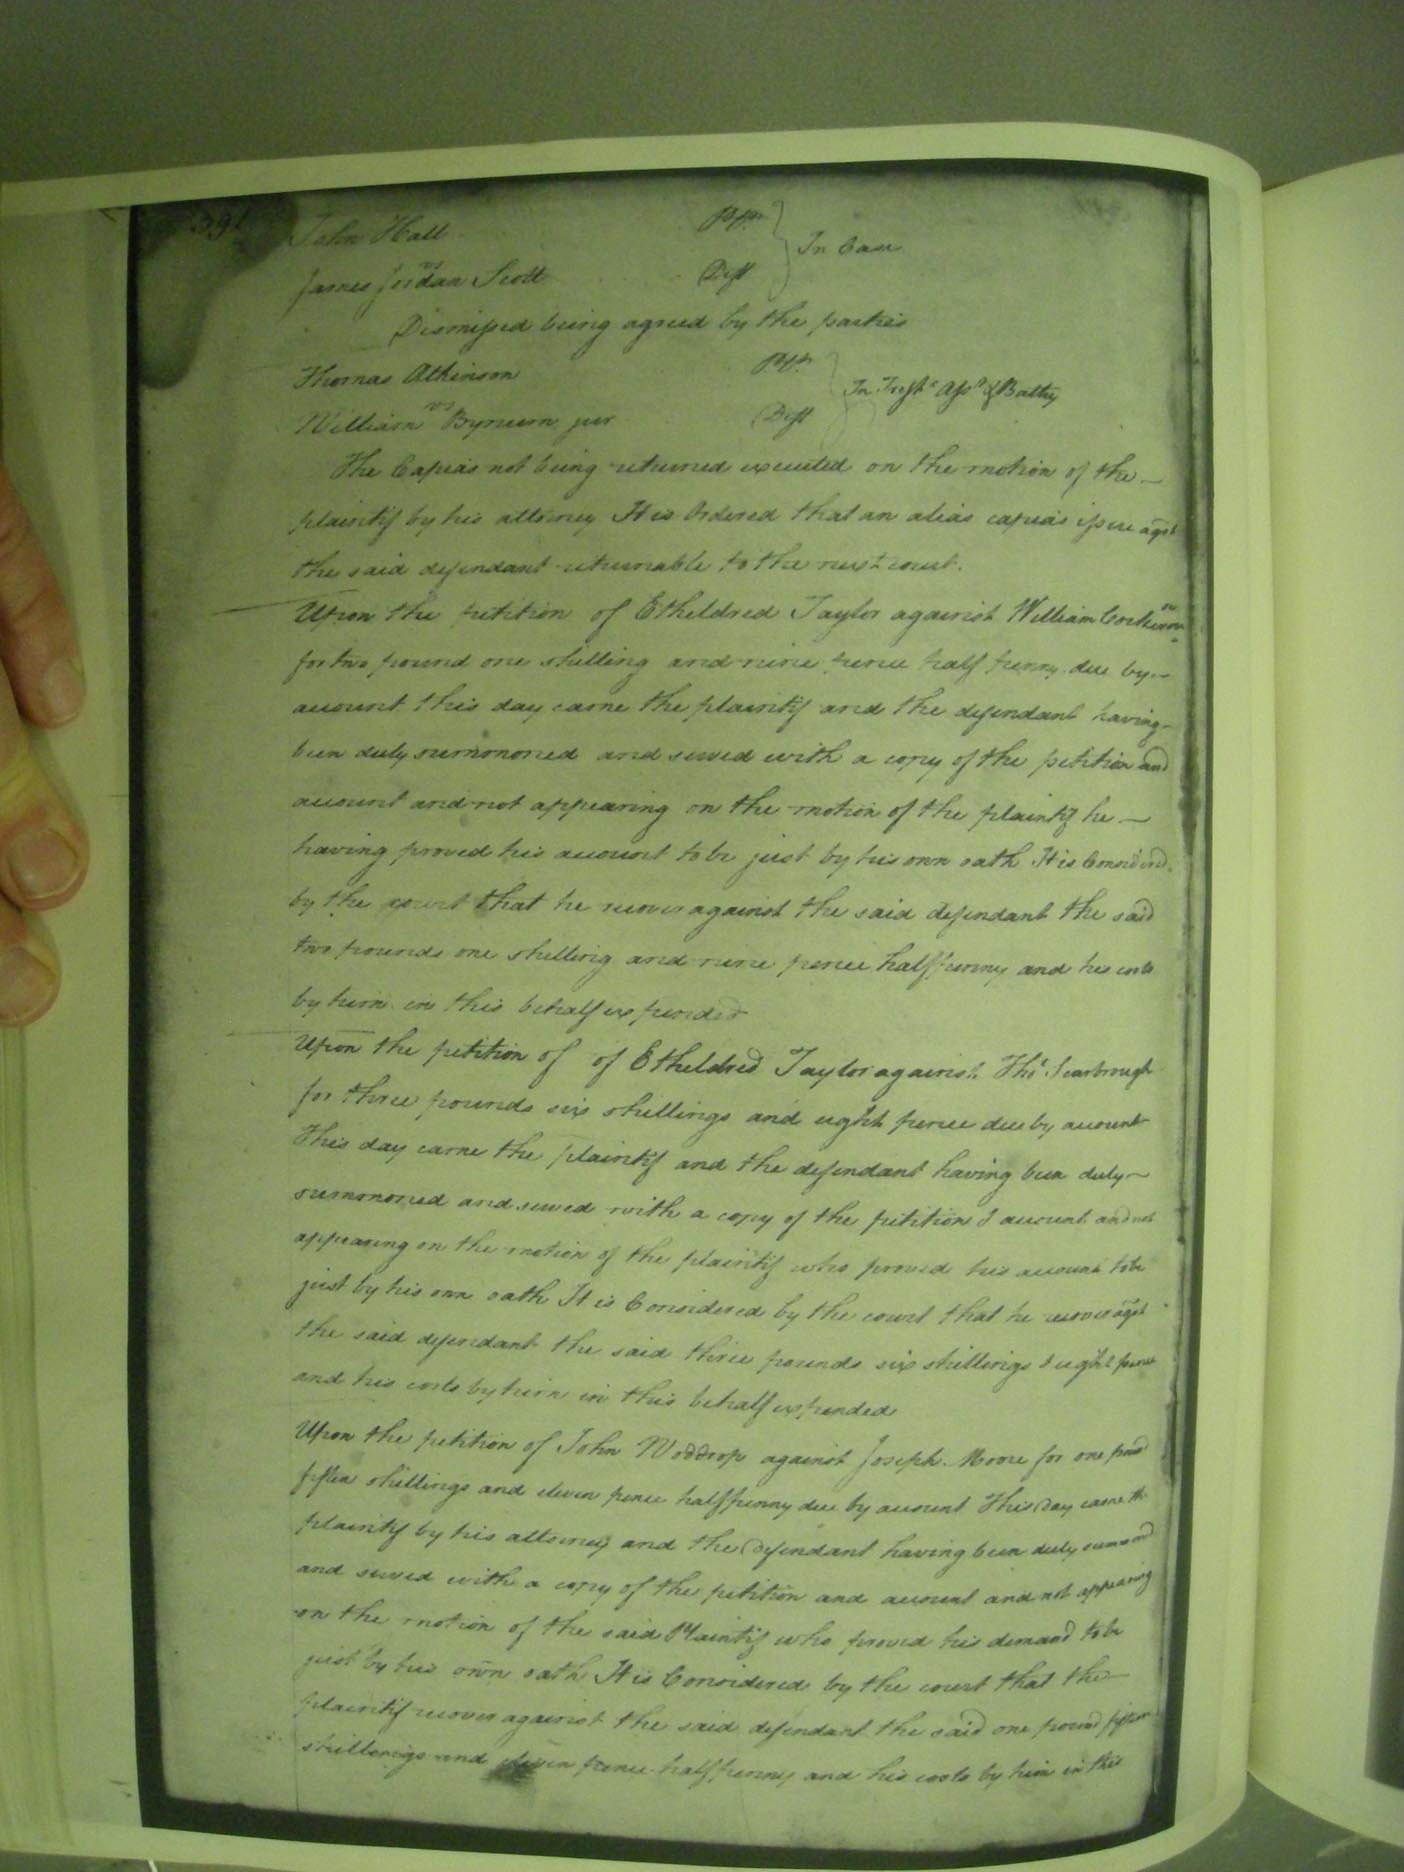 John Hall Plt
vs } In Case
James Jordan Scott Deft
Dismissed being agreed by the parties
Thomas Atkinson Plt
vs } In Tresps Asst & Battry
William Bynum jur Deft
The Capias not being returned executed on the motion of the
plaintif by his attorney It is Ordered that an alias capias issue agst
the said defendant returnable to the next court.
Upon the petition of Etheldred Taylor against William
for two pound one shilling and nine pence half penny due by
account this day came the plaintif and the defendant having
been duly summoned and served with a copy of the petition and
account and not appearing on the motion of the plaintif he
having proved his account to be just by his own oath It is Considered
by the court that he recover against the said defendant the said
two pounds one shilling and nine pence halfpenny and his costs
by him in this behalf expended
Upon the petition of of Etheldred Taylor against Thos Scarbrough
for three pounds six shillings and eight pence due by account
This day came the plaintif and the defendant having been duly
summoned and served with a copy of the petition & account and not
appearing on the motion of the plaintif who proved his account to be
just by his own oath It is Considered by the court that he recover agst
the said defendant the said three pounds six shillings & eight pence
and his costs by him in this behalf expended
Upon the petition of John Woddrop against Joseph Moore for one pound
fifteen shillings and eleven pence halfpenny due by account This Day came the
plaintif by his attorney and the Defendant having been duly summond
and served with a copy of the petition and account and not appearing
on the motion of the said Plaintif who proved his demand to be
just by his own oath It is Considered by the court that the
plaintif recover against the said defendant the said one pound fifteen
shillings and eleven pence halfpenny and his costs by him in this